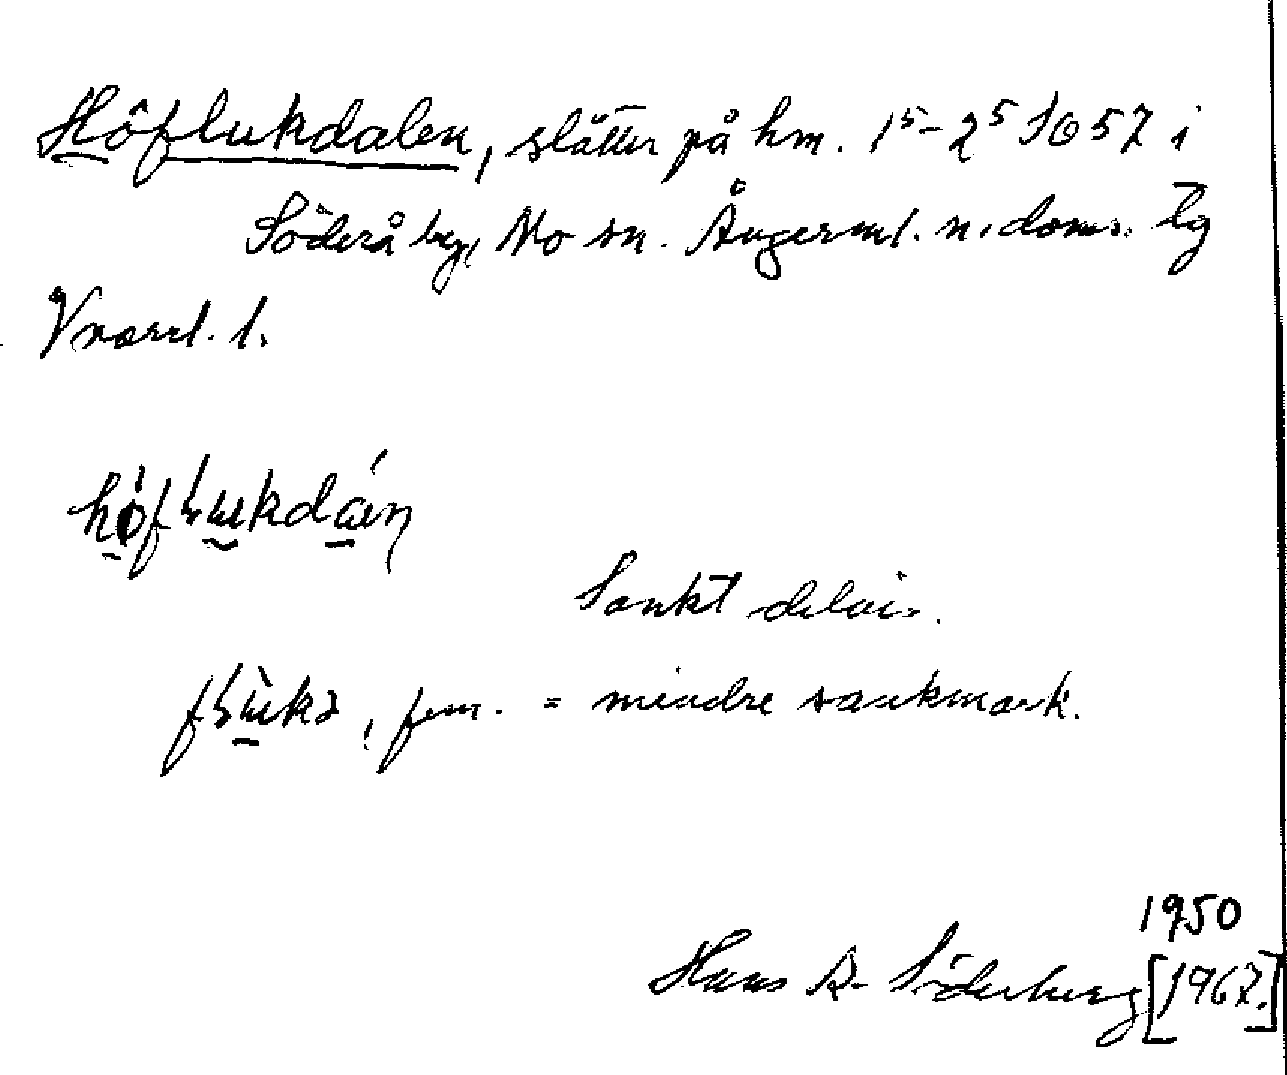 Höflukdalen, slåtter på hm. 1⁵-2⁵ 1o 57 i
Söderå by, Mo sn. Ångerml. n. doms. lg
Vnorrl. l.
Sankt delvis.
, fem. = mindre sankmark.
1950
Hans R. Söderberg [1967.]